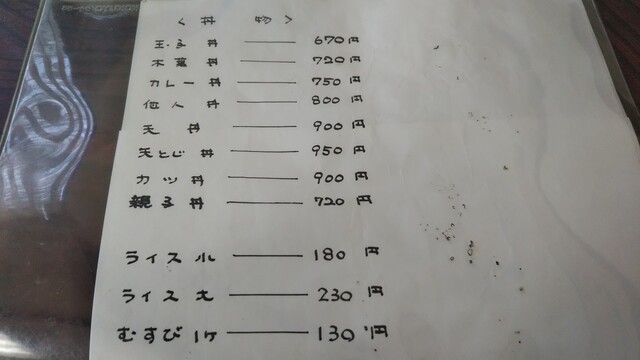 < 丼 物 >
玉子丼 ―― 670円
木葉丼 ―― 720円
カレー丼 ―― 750円
他人丼 ―― 800円
天丼 ―― 900円
天とじ丼 ―― 950円
カツ丼 ―― 900円
親子丼 ―― 720円
ライス小 ―― 180円
ライス大 ―― 230円
むすび1ケ ―― 130円